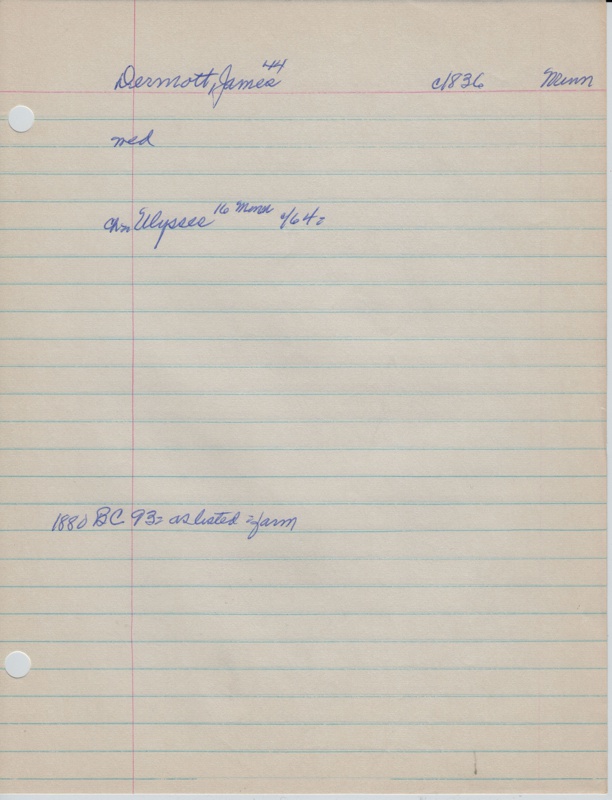 Dermott, James 44 c1836 Minn
med
chn Ulysses 16 c/64=
1880 BC 93= as listed = farm